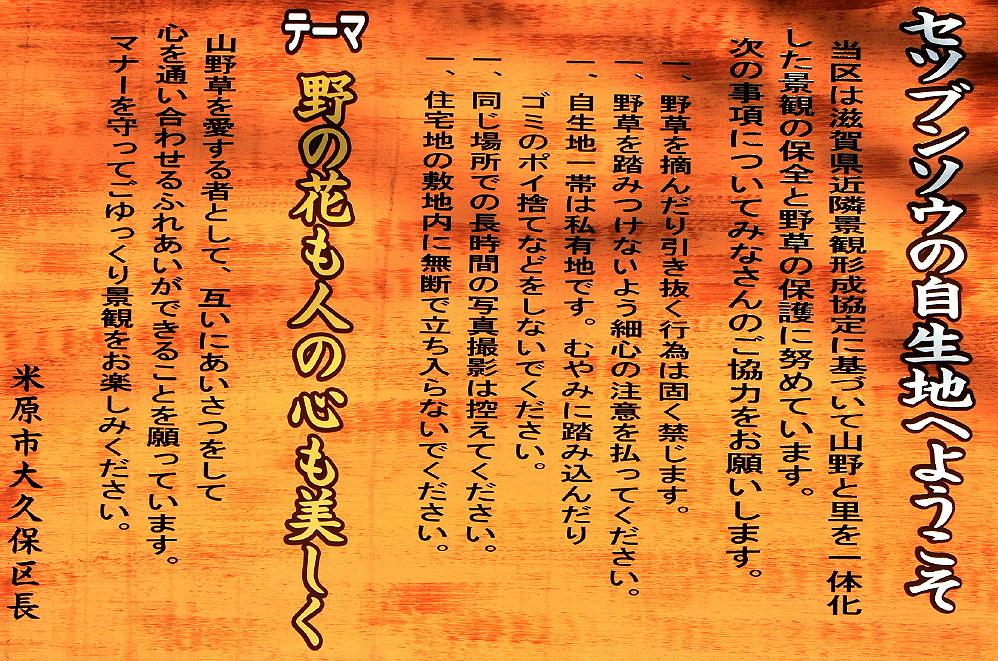 セツブンソウの自生地へようこそ
当区は滋賀県近隣景観形成協定に基づいて山野と里を一体化
した景観の保全と野草の保護に努めています。
次の事項についてみなさんのご協力をお願いします。
一、野草を摘んだり引き抜く行為は固く禁じます。
一、野草を踏みつけないよう細心の注意を払ってください。
一、自生地一帯は私有地です。むやみに踏み込んだり
ゴミのポイ捨てなどをしないでください。
一、同じ場所での長時間の写真撮影は控えてください。
一、住宅地の敷地内に無断で立ち入らないでください。
テーマ 野の花も人の心も美しく
山野草を愛する者として、互いにあいさつをして
心を通い合わせるふれあいができることを願っています。
マナーを守ってごゆっくり景観をお楽しみください。
米原市大久保区長